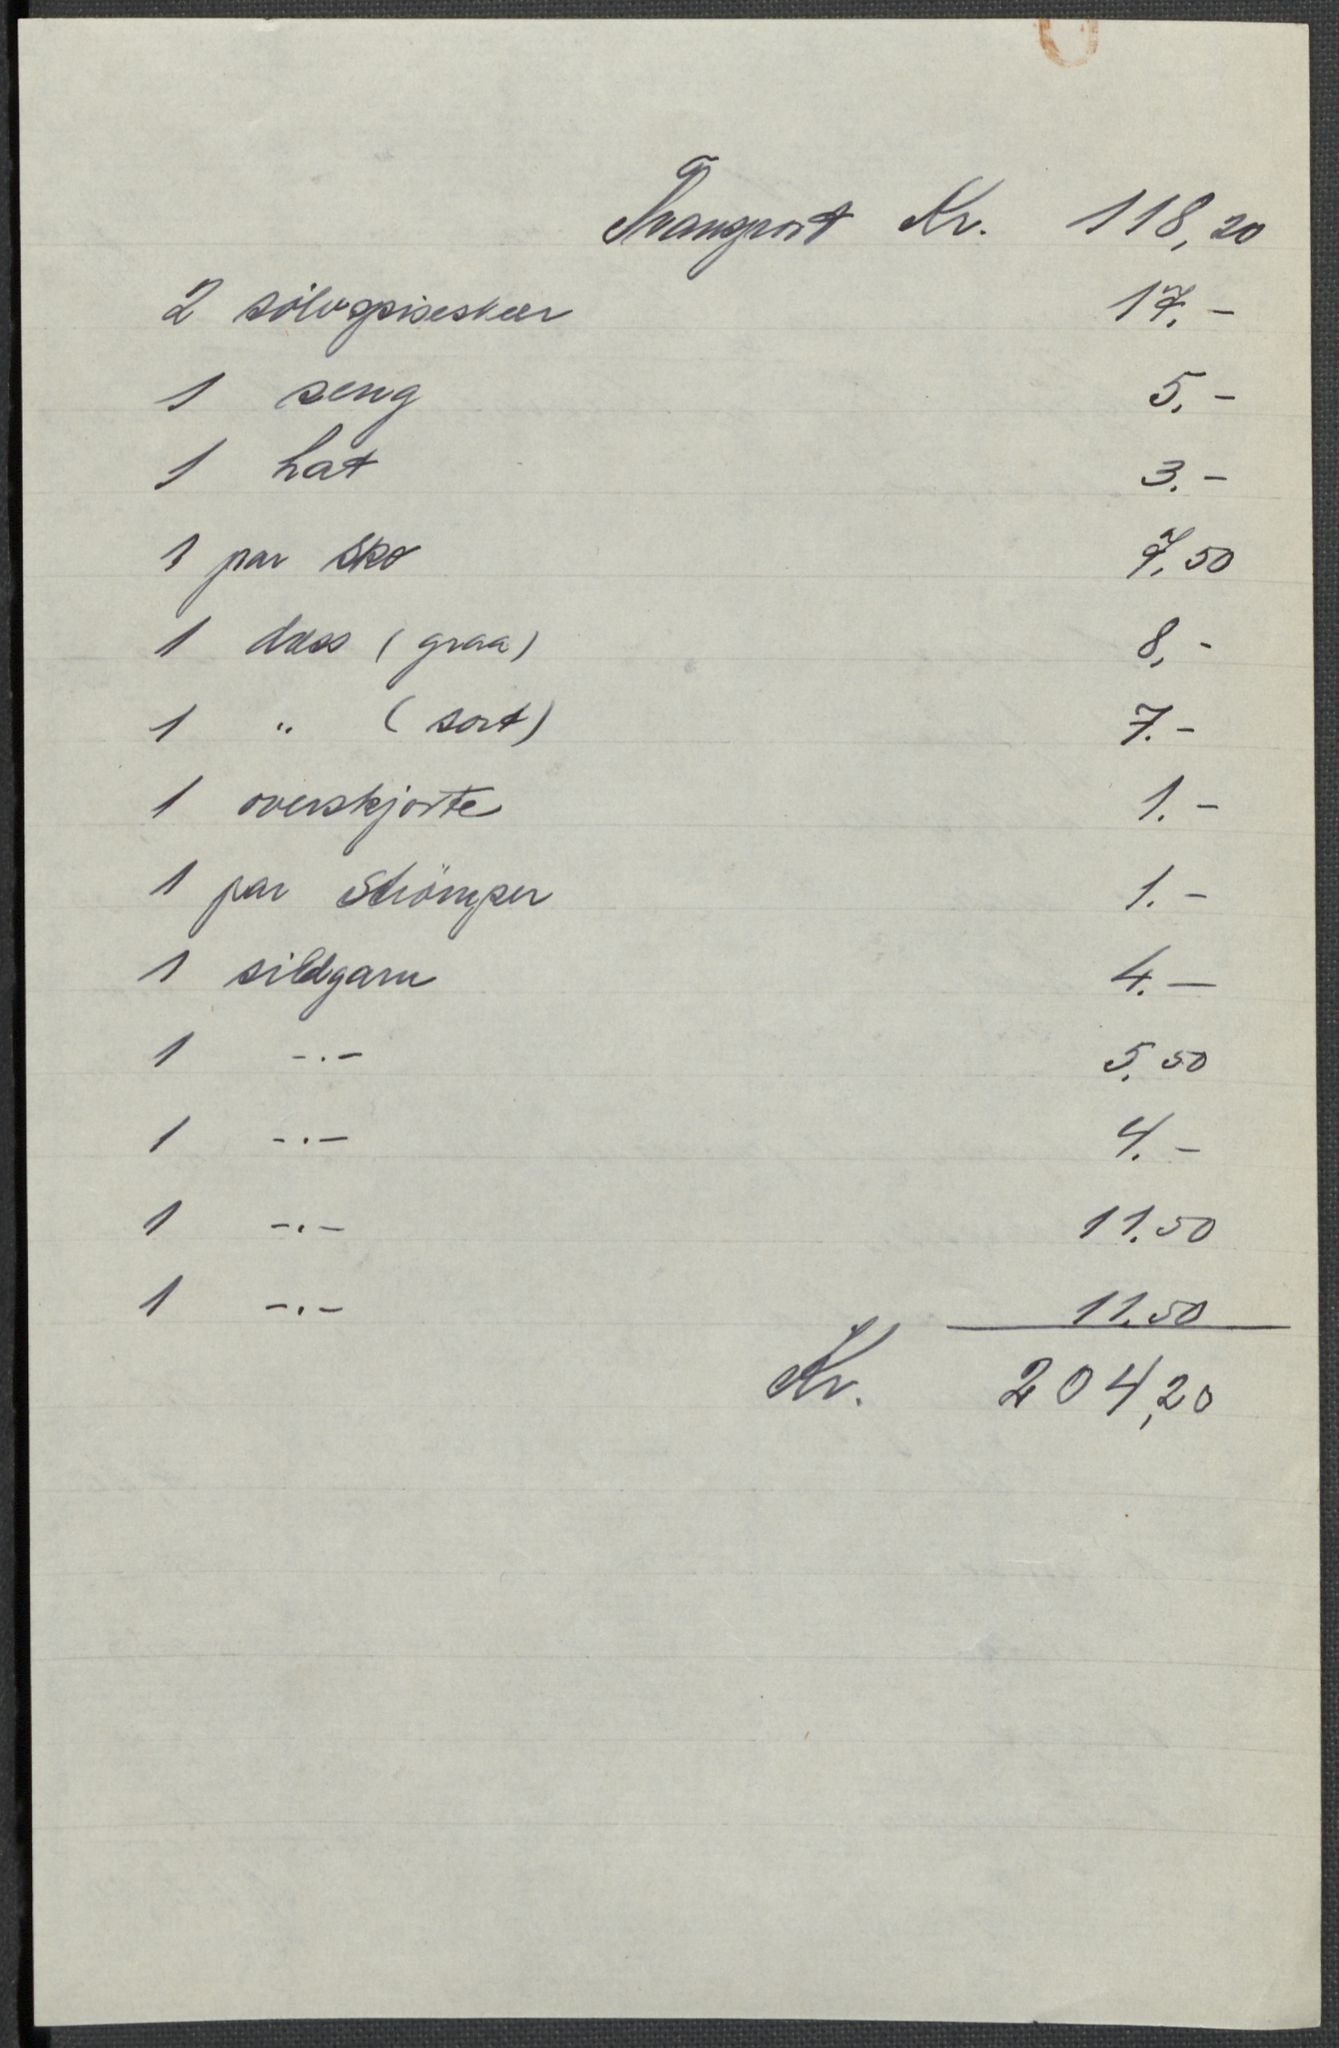 Transport Kr. 118,20
2 sölvspiseskeer 17.-
1 seng 5.-
1 hat 3.-
1 par sko 7,50
1 dress (graa) 8,-
1 " (sort) 7.-
1 overskjorte 1.-
1 par Strömper 1.-
1 sildgarn 4.-
1 -.- 5.50
1 -.- 4.-
1 -.- 11.50
1 -.- 11.50
Kr. 204,20